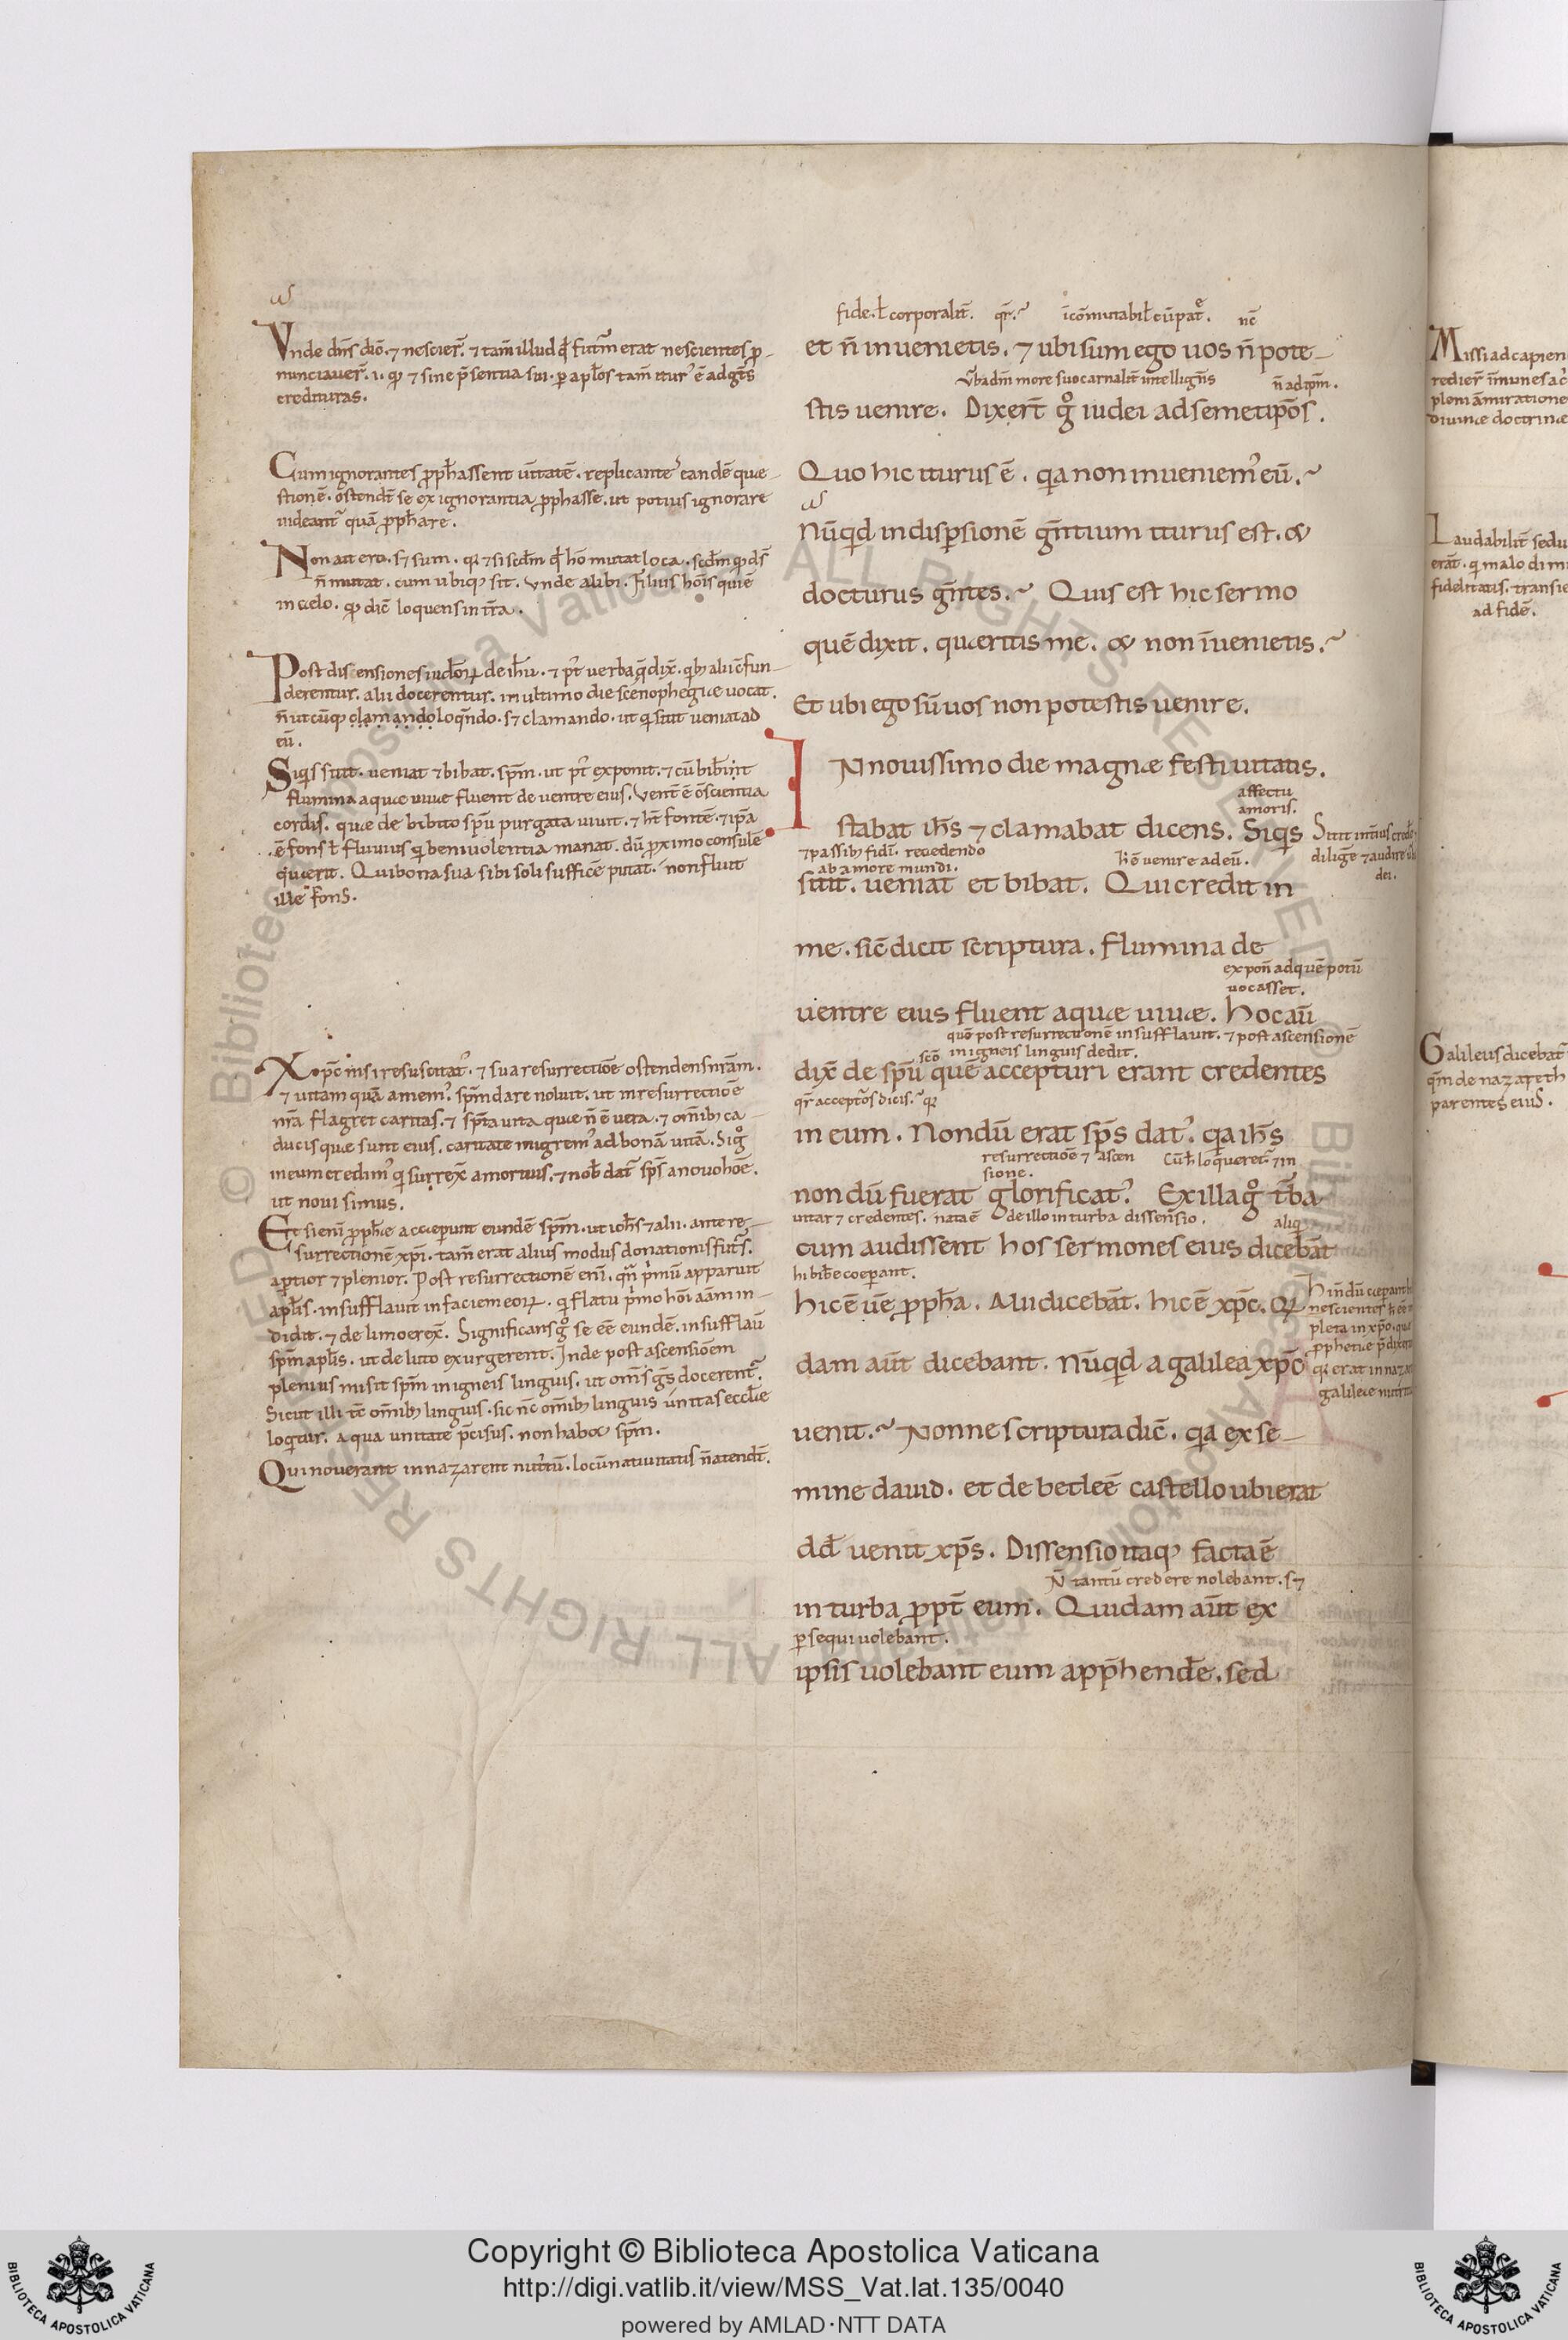 Vnde dn̄s dīc̄. ⁊ nescier̄. ⁊ tam̄ illud qd̄ futur̄ erat nescientes ꝓ-
nunciauer̄. .i. qꝫ ⁊ sine p̄sentia sui. ꝑ apl̄os tam̄ iturꝰ ē ad gn̄ts
credituras.
Cum ignorantes ꝓph̄assent ūitatē. replicantes eandē quæ-
stionē. ōstendt̄ se ex ignorantia ꝓphasse. ut potius ignorare
uideant̄ quā ꝓph̄are.
Non ait ero. sꝫ sum. qꝛ ⁊ si sed̄m qd̄ hō mutat loca. sed̄m qd̄ ds̄
n̄ mutat. cum ubiqꝫ sit. Vnde alibi. Filius hōis qui ē
in cælo. qꝫ dic̄ loquens in tr̄a.
Post discensiones iudeoꝝ de ih̄u. ⁊ pt̄ uerba q̄ dix̄. qbꝫ alii c̄fun-
derentur. alii docerentur. in ultimo die scenophegiæ uocat.
n̄ utcūqꝫ clamando loqn̄do. sꝫ clamando. ut q sitit ueniat ad
eū.
Siqs sitit. ueniat ⁊ bibat. spm̄. ut pt̄ exponit. ⁊ cū biberint
flumina aquæ uiuæ fluent de uentre eius. Vent̄ ē c̄scientia
cordis. quæ de bibito spū purgata uiuit. ⁊ ht̄ fontē. ⁊ ip̄a
ē fons ł fluuius q beniuolentia manat. dū ꝓximo consulē
quærit. Qui bona sua sibi soli sufficē putat. non fluit
ille fons.
Xp̄c̄ nisi resuscitatꝰ. ⁊ sua resurrectiōe ostendens nr̄am.
⁊ uitam quā amemꝰ. spm̄ dare noluit. ut in resurrectiōe
nr̄a flagret caritas. ⁊ sp̄ta uita quæ n̄ ē uera. ⁊ om̄ibꝫ ca-
ducis quæ sunt eius. caritate migremꝰ ad bonā uitā. Si gͦ
in eum credimꝰ q surrex̄ a mortuis. ⁊ nob̄ dat̄ sp̄s a nouo hōe.
ut noui simus.
Etsi eni ꝓph̄æ acceperunt eundē spm̄. ut ioh̄s ⁊ alii. ante re-
surrectionē xp̄i. tam̄ erat alius modus donationis futꝰs.
aptior ⁊ plenior. Post resurrectionē eni. qn̄ p̄mū apparuit
apl̄is. insufflauit in faciem eoꝝ. q flatu p̄mo hōi aīam in-
didit. ⁊ de limo erex̄. Significans gͦ se eē eundē. insufflauit
spm̄ apl̄is. ut de luto exurgerent. Inde post ascensiōem
plenius misit spm̄ in igneis linguis. ut om̄s gn̄s docerent̄.
Sicut illi tc̄ om̄ibꝫ linguis. sic nc̄ om̄ibꝫ linguis unitas eccl̄æ
loqtur. a qua unitate p̄cisus. non habꝫ spm̄.
Qui nouerant in nazareth nutritū. locū natiuitatis n̄ atendt̄.
fide. ł corporalit̄. qr̄.? icōmutabil̄ cū patre. nc̄
et n̄ inuenietis. ⁊ ubi sum ego uos n̄ pote-
Vba dn̄i more suo carnalit̄ intellign̄s n̄ ad ipm̄.
stis uenire. Dixert̄ gͦ iudei ad semetipōs.
Quo hic iturus ē. qa non inueniemꝰ eū.?
Nūqd in dispersionē gn̄tium iturus est. &
docturus gn̄tes.? Quis est hic sermo
quē dixit. quæritis me. & non īuenietis.?
Et ubi ego sū uos non potestis uenire.
IN nouissimo die magnæ festiuitatis.
affectu
amoris.
stabat ih̄s ⁊ clamabat dicens. Siqs
⁊ passibꝫ fidei. recedendo h̄ ē uenire ad eū.
ab amore mundi.
Sitit intius
dilig̅e ⁊ audire
dei.
sitit. ueniat et bibat. Qui credit in
me. sic̄ dicit scriptura. flumina de
expon̄ ad quē potū
uocasset.
uentre eius fluent aquæ uiuæ. Hoc aū
quō post resurrectionē insufflauit. ⁊ post ascensionē
sc̄o in igneis linguis dedit.
dix̄ de spū quē accepturi erant credentes
qr̄ acceptōs dicis.? qꝛ
in eum. Nondū erat sp̄s datꝰ. qa ih̄s
resurrectiōe ⁊ ascen
sione.
nondū fuerat glorificatꝰ. Ex illa gͦ tb̄a
uitar ⁊ credentes. nata ē de illo in turba dissensio. aliq
cum audissent hos sermones eius dicebāt
hi bibe coeperant.
hic ē ue ꝓph̄a. Alii dicebāt. hic ē xp̄c̄. Qꝛ
dam aūt dicebant. Nūqd a galilea xp̄c̄
Hi n̄dū
nescientes
pleta in xp̄o.
ꝓphetiæ
qꝛ erat in
galileæ
uenit.? Nonne scriptura dic̄. qa ex se-
mine dauid. et de betleē castello ubi erat
dd̄ uenit xp̄s. Dissensio itaqꝫ facta ē
N̄ tantū credere nolebant. sꝫ
in turba ꝓpt̄ eum. Quidam aūt ex
ꝑsequi uolebant.
ipsis uolebant eum app̄hende. sed
Missi ad capien
redier̄ īmunes
pleni āmiratione
diuinæ doctrinæ
Laudabilit̄ sedu
erāt. q malo
fidelitatis.
ad fidē.
Galileus dicebat̄
qm̄ de nazareth
parentes eius.
© Biblioteca Apostolica Vaticana ALL RIGHTS RESERVED
Copyright © Biblioteca Apostolica Vaticana
http://digi.vatlib.it/view/MSS_Vat.lat.135/0040
powered by AMLAD·NTT DATA
BIBLIOTECA APOSTOLICA VATICANA
BIBLIOTECA APOSTOLICA VATICANA